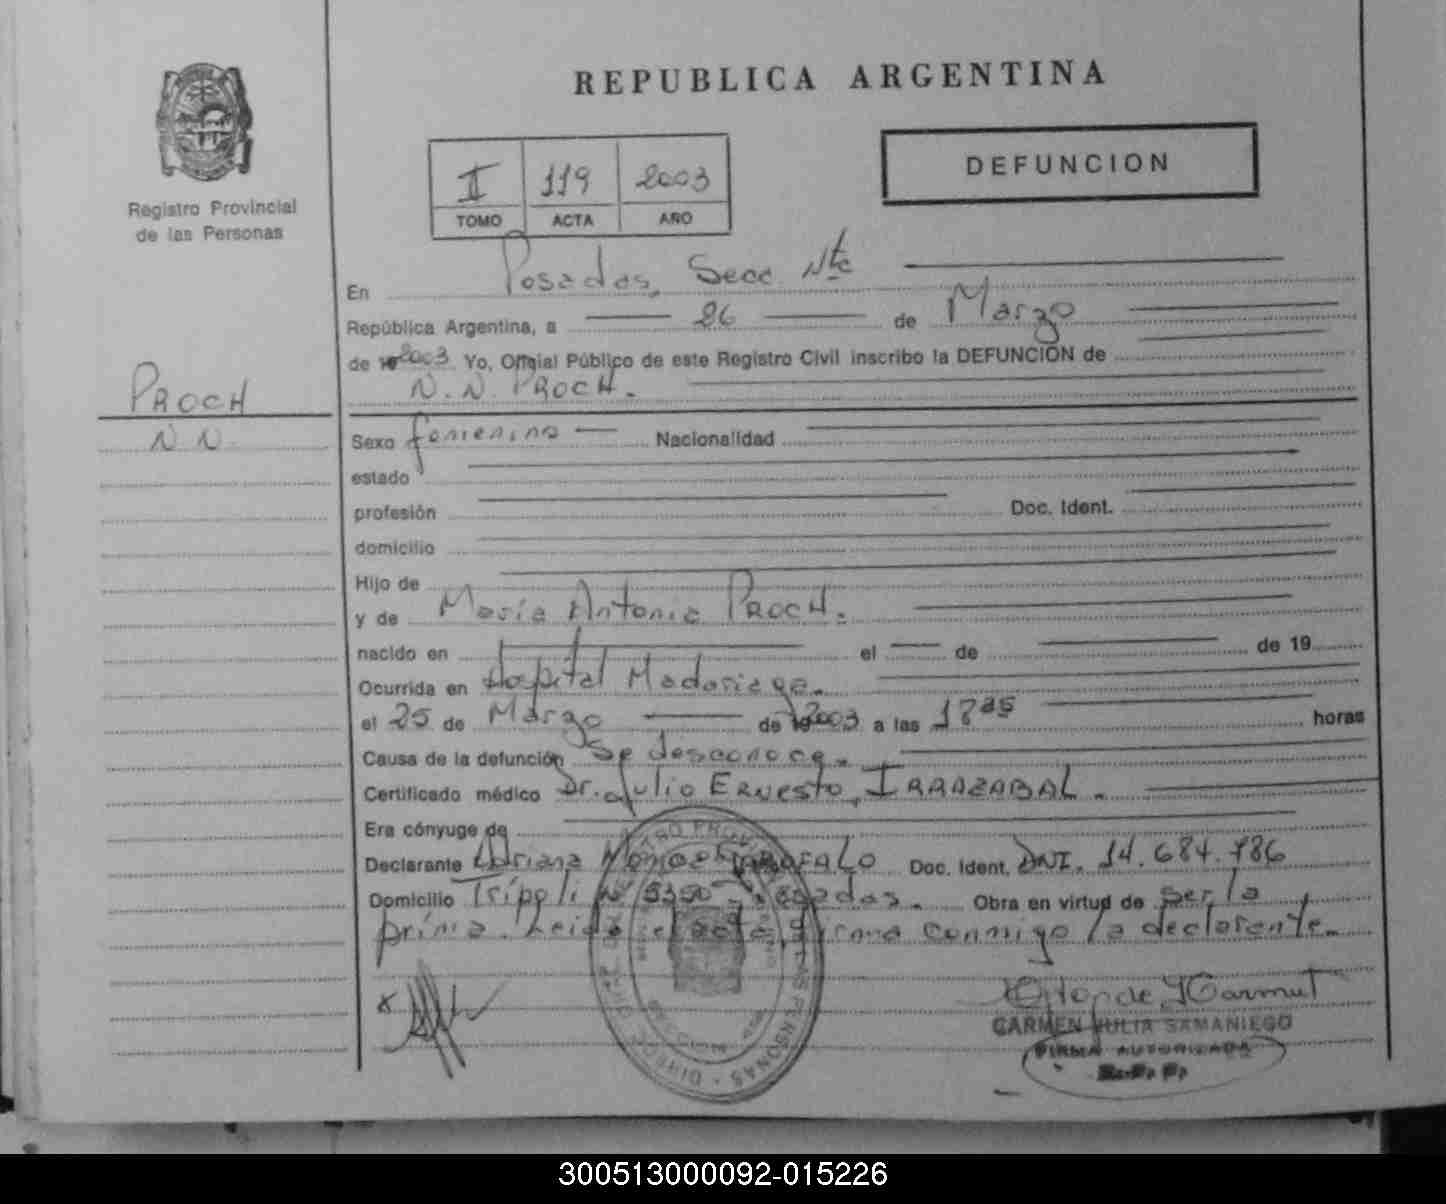 REPUBLICA ARGENTINA
Registro Provincial
de las Personas
II 119 2003
TOMO ACTA AÑO
DEFUNCION
PROCH
N.N.
En Posadas, Secc. Nte
República Argentina, a 26 de Marzo
de 2003 Yo, Oficial Público de este Registro Civil inscribo la DEFUNCIÓN de
N.N. PROCH.
Sexo femenino Nacionalidad
estado
profesión Doc. Ident.
domicilio
Hijo de
y de María Antonia PROCH.
nacido en el de de 19
Ocurrida en Hospital Madariaga.
el 25 de Marzo de 2003 a las 18 35 horas
Causa de la defunción Se desconoce.
Certificado médico Dr. Julio Ernesto, IRRAZABAL.
Era cónyuge de
Declarante Adriana Doc. Ident. DNI. 14.684.786
Domicilio Trípoli Nº 5350 Posadas. Obra en virtud de ser la
prima. Leida el acta, firma conmigo la declarante.
CARMEN JULIA SAMANIEGO
FIRMA AUTORIZADA
300513000092-015226